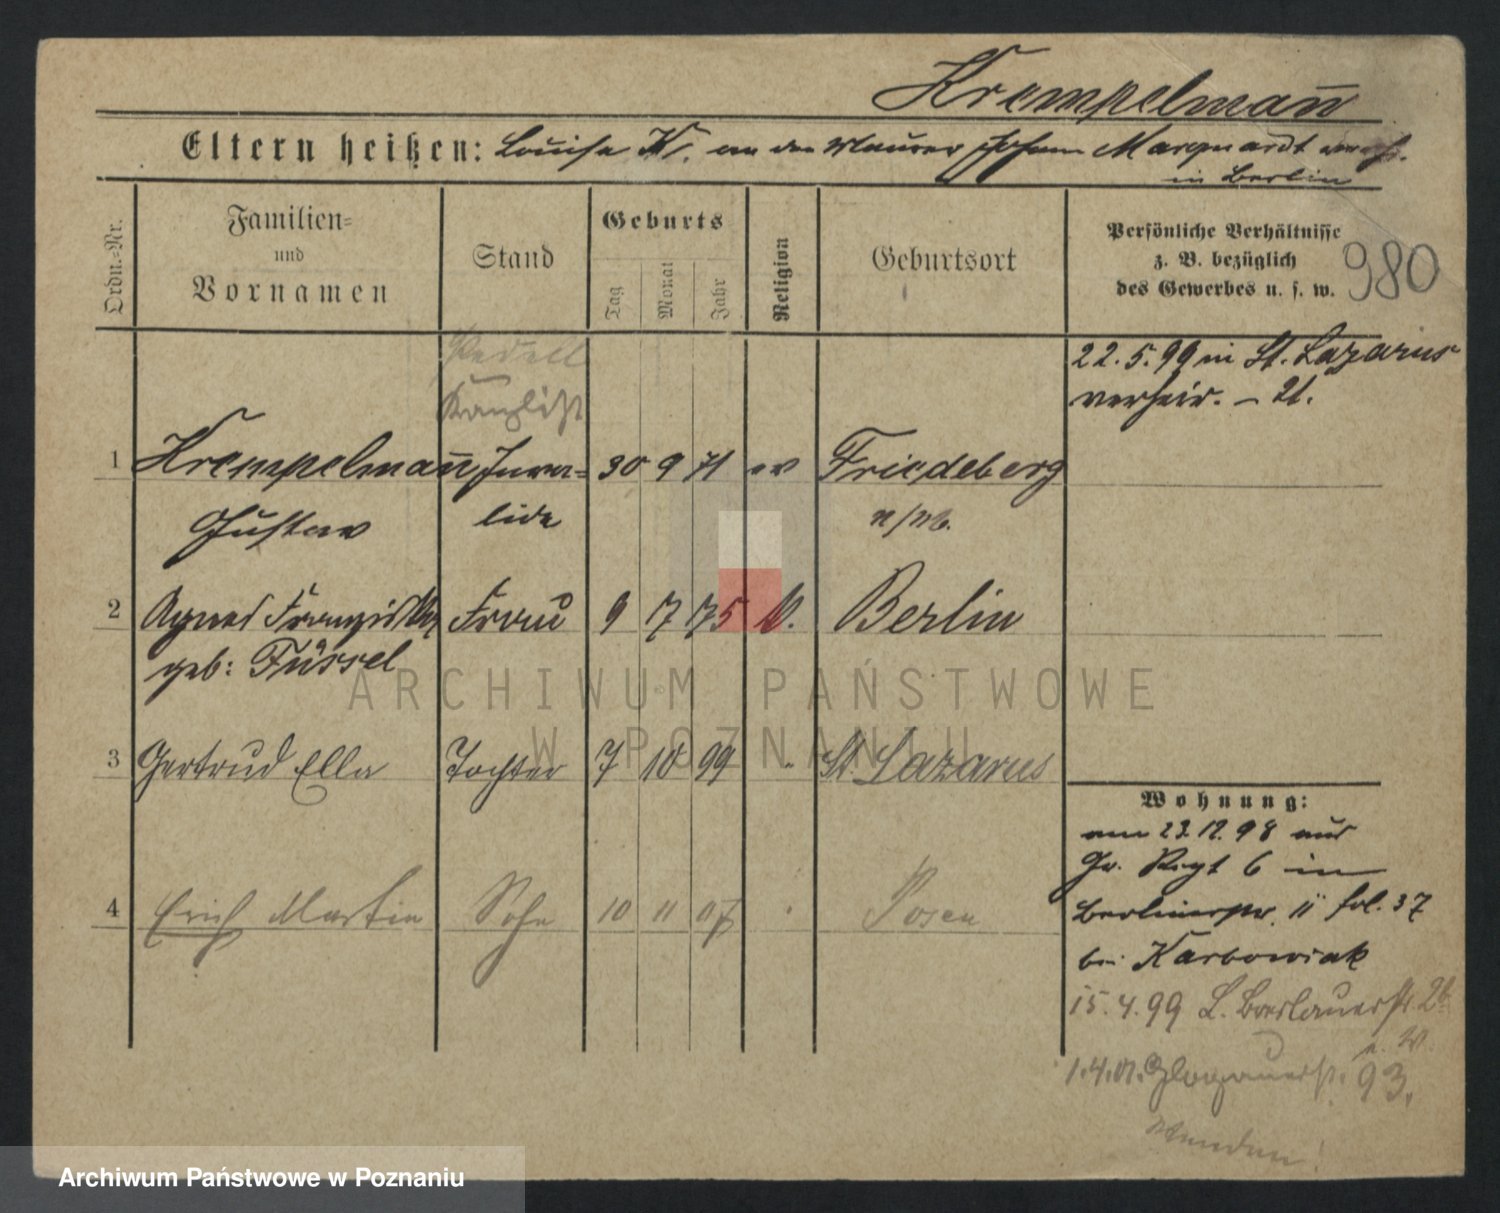 Krempelmann
Eltern heißen: Louise K. an den Maurer Johann Marquardt verehe.
in Berlin
Ordn.-Nr.
Familien- und Vornamen
Stand
Geburts
Tag
Monat
Jahr
Religion
Geburtsort
Persönliche Verhältnisse
z. B. bezüglich
des Gewerbes u. s. w.
980
Pedell
Kanzlist
22.5.99 in St. Lazarus
verheir. - 21.
1 Krempelmann Inva- 30 9 71 ev Friedeberg
Gustav lide n/M.
2 Agnes Franziska Frau 9 7 75 k. Berlin
geb: Füssel
3 Gertrud Ella Tochter 7 10 99 St. Lazarus
4 Erich Martin Sohn 10 11 07 Posen
Wohnung:
am 23.12.98 aus
Gr. 6 in
Berlinerstr. 11 fol. 37
bei Karbowiak
15.4.99 L. Breslauerstr. 26
n. W.
1.4.01. Glogauerstr. 93.
Wenden!
ARCHIWUM PAŃSTWOWE
W POZNANIU
Archiwum Państwowe w Poznaniu